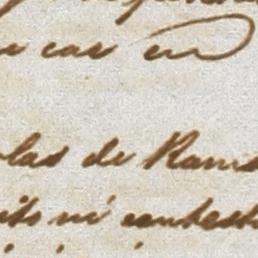 e cas en
las de Ram
ito ni contest